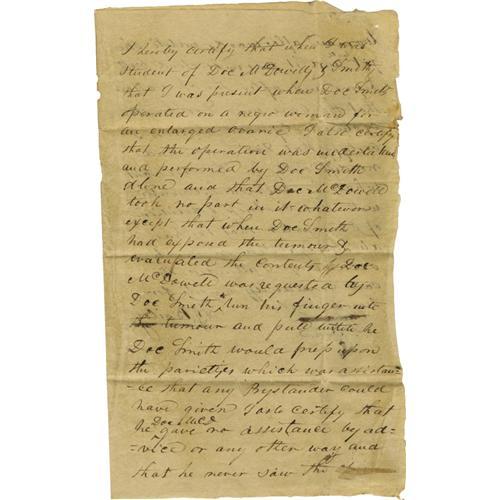 I hereby certify that when I was
Student of Doc McDowell & Smith
that I was present when Doc Smith
operated on a negro woman for
an enlarged ovarie I also certify
that the operation was undertaken
and performed by Doc Smith
alone and that Doc McDowell
took no part in it whatever
except that when Doc Smith
had exposed the tumour &
evacuated the contents Doc
McDowell was requested by
Doc Smith run his finger into
the tumour and pull while he
Doc Smith would press upon
the parietyes which was assistan-
-ce that any Bystander could
have given I also certify that
he Doc McD gave no assistance by ad-
-vice or any other way and
that he never saw the